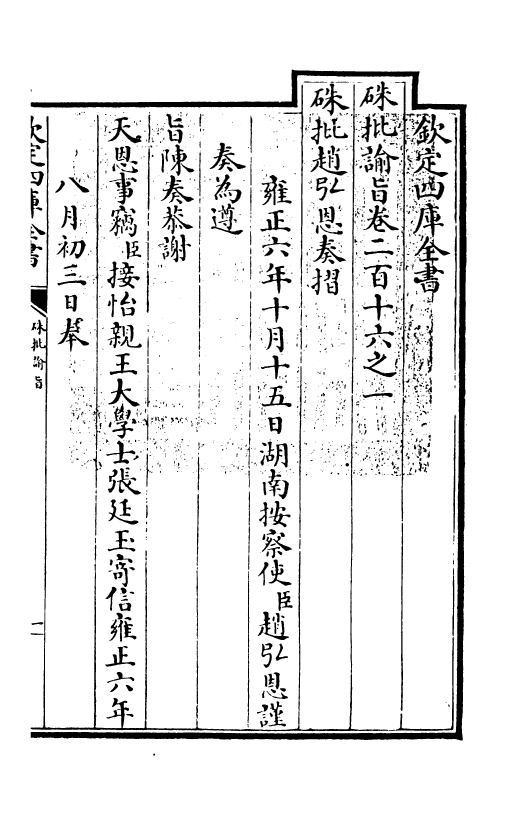 欽定四庫全書
硃批諭旨卷二百十六之一
硃批趙弘恩奏摺
雍正六年十月十五日湖南按察使臣趙弘恩謹
奏為遵
旨陳奏恭謝
天恩事竊臣接怡親王大學士張廷玉寄信雍正六年
八月初三日奉
欽定四庫全書
硃批諭旨